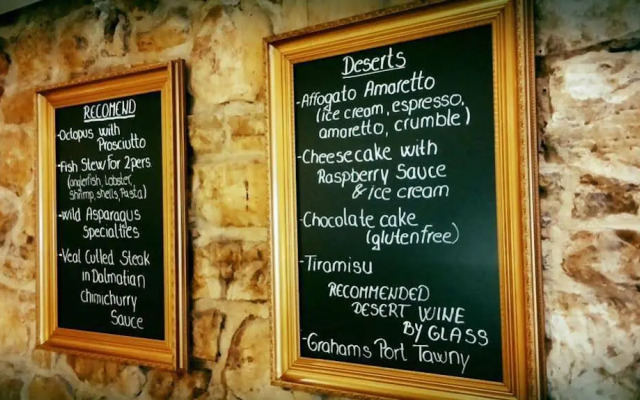 RECOMEND
-Octopus with
Prosciutto
-Fish Stew for 2pers
(anglerfish, Lobster,
shrimp, shells, Pasta)
-Wild Asparagus
Specialties
-Veal Culled Steak
in Dalmatian
Chimichurry
Sauce
Deserts
-Affogato Amaretto
(ice cream, espresso,
amaretto, crumble)
-Cheesecake with
Raspberry Sauce
& ice cream
-Chocolate cake
(glutenfree)
-Tiramisu
RECOMMENDED
DESERT WINE
BY GLASS
-Grahams Port Tawny